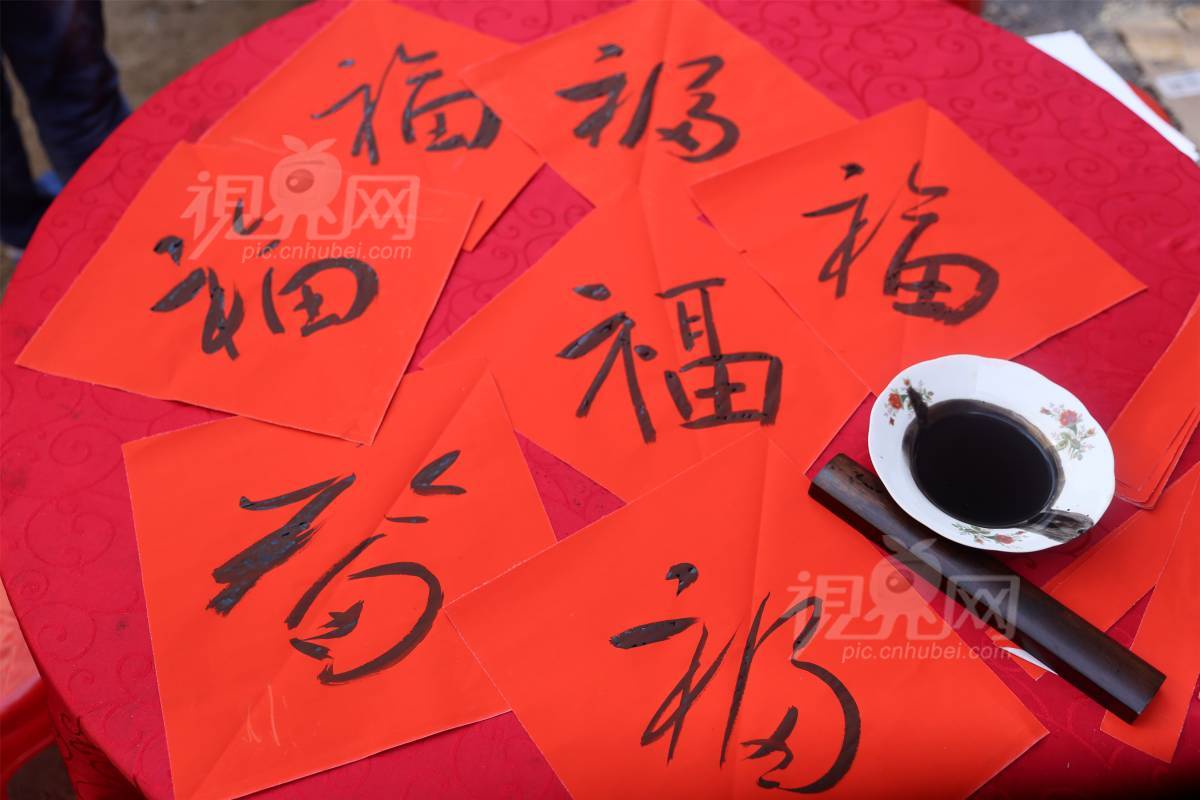 福
福
福
福
福
福
福
视界网
pic.cnhubei.com
视界网
pic.cnhubei.com